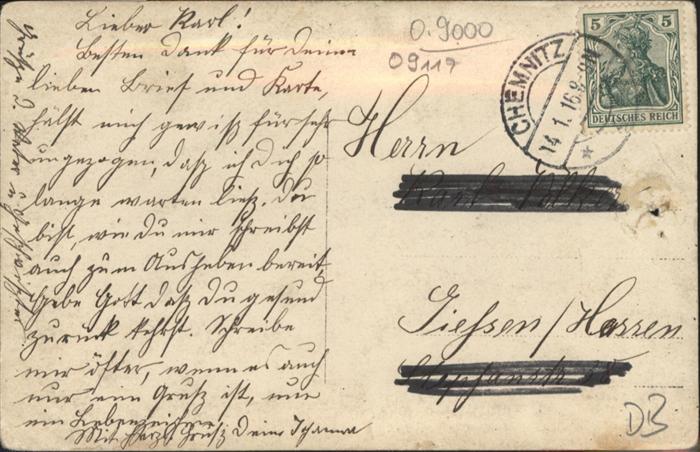 Lieber Karl!
Besten Dank für Deinen
lieben Brief und Karte,
hälst mich gewiß für sehr
ungezogen, daß ich Dich so
lange warten ließ. Du
bist, wie Du mir schreibst
auch zum Ausheben bereit,
gebe Gott daß Du gesund
zurück kehrst. Schreibe
mir öfter, wenn es auch
nur ein Gruß ist, nur
ein Lebenszeichen.
Mit herzl. Gruß Deine Johanna
Grüße d. Vater u. Geschwister
0.9000
09117
CHEMNITZ
14.1.16.8-9N
5 5
DEUTSCHES REICH
Herrn
Karl
Giessen/Hessen
DB